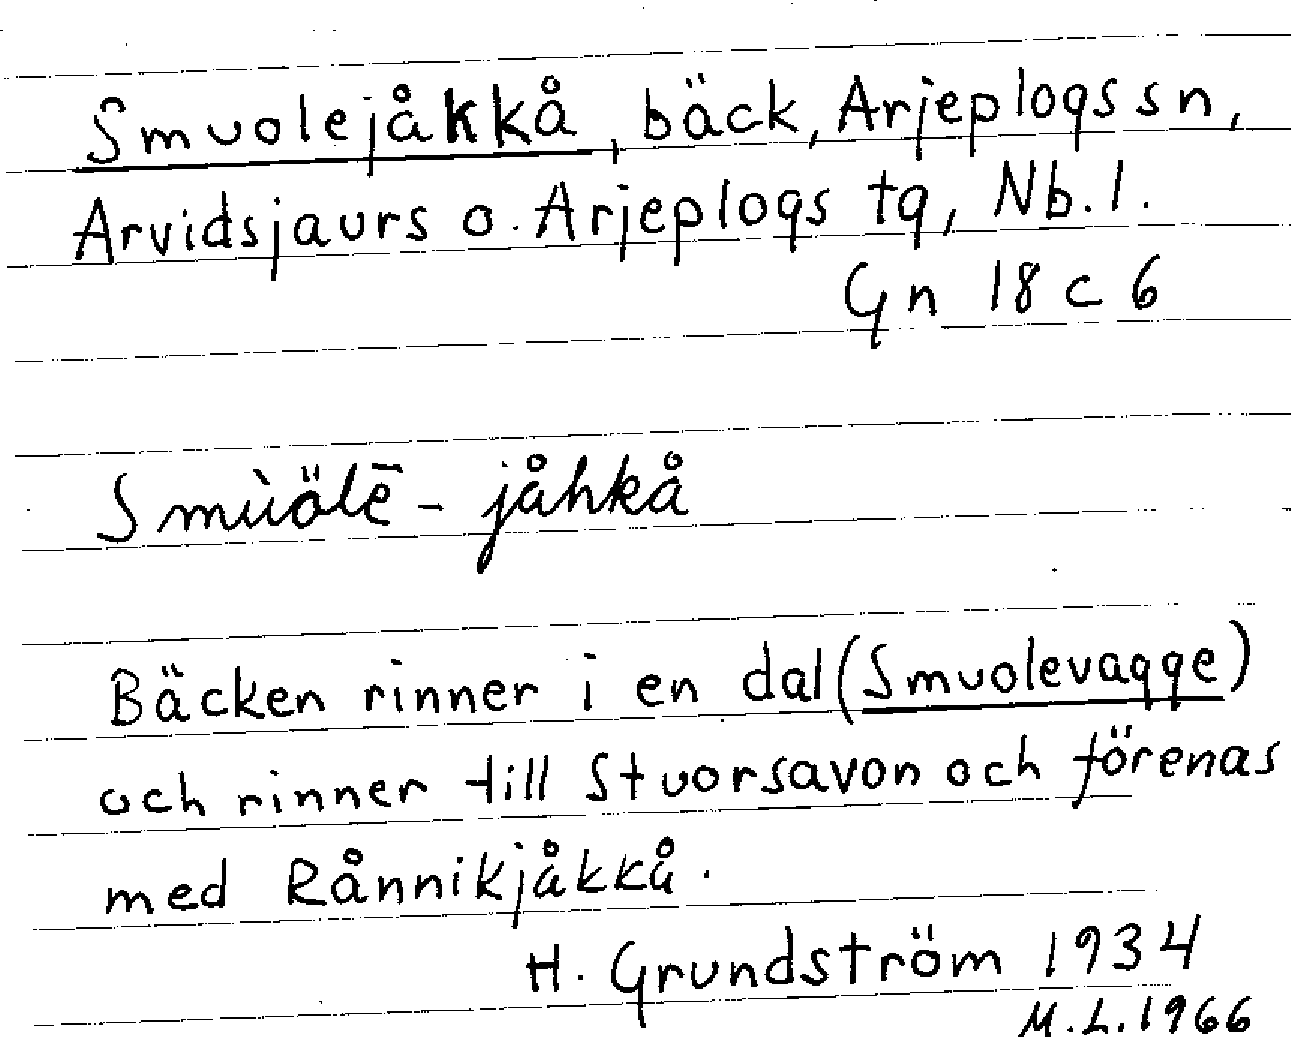 Smuolejåkkå, bäck, Arjeplogs sn,
Arvidsjaurs o. Arjeplogs tg, Nb. l.
Gn 18 c 6
Smùölē - jåhkå
Bäcken rinner i en dal (Smuolevagge)
och rinner till Stuorsavon och förenas
med Rånnikjåkkå.
H. Grundström 1934
M.L. 1966